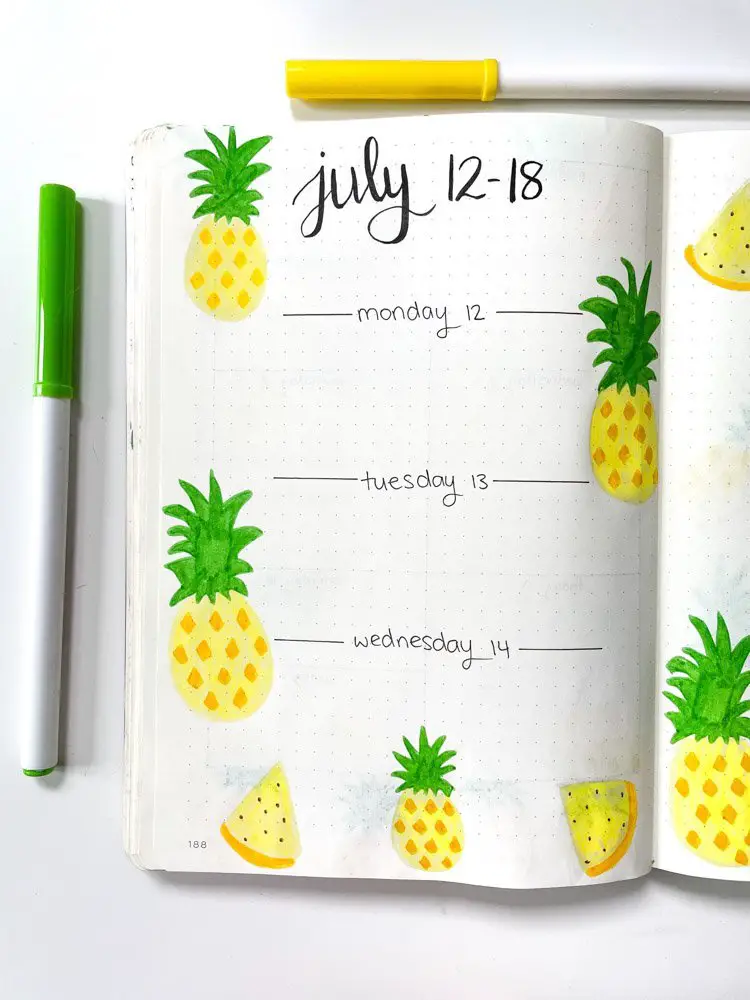 july 12-18
monday 12
tuesday 13
wednesday 14
188